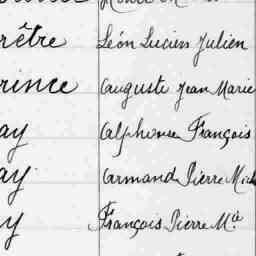 rêtre Léon Lucien Julien
rince Auguste Jean Marie
ay Alphonse François
ay Armand Pierre
y François Pierre M.ie